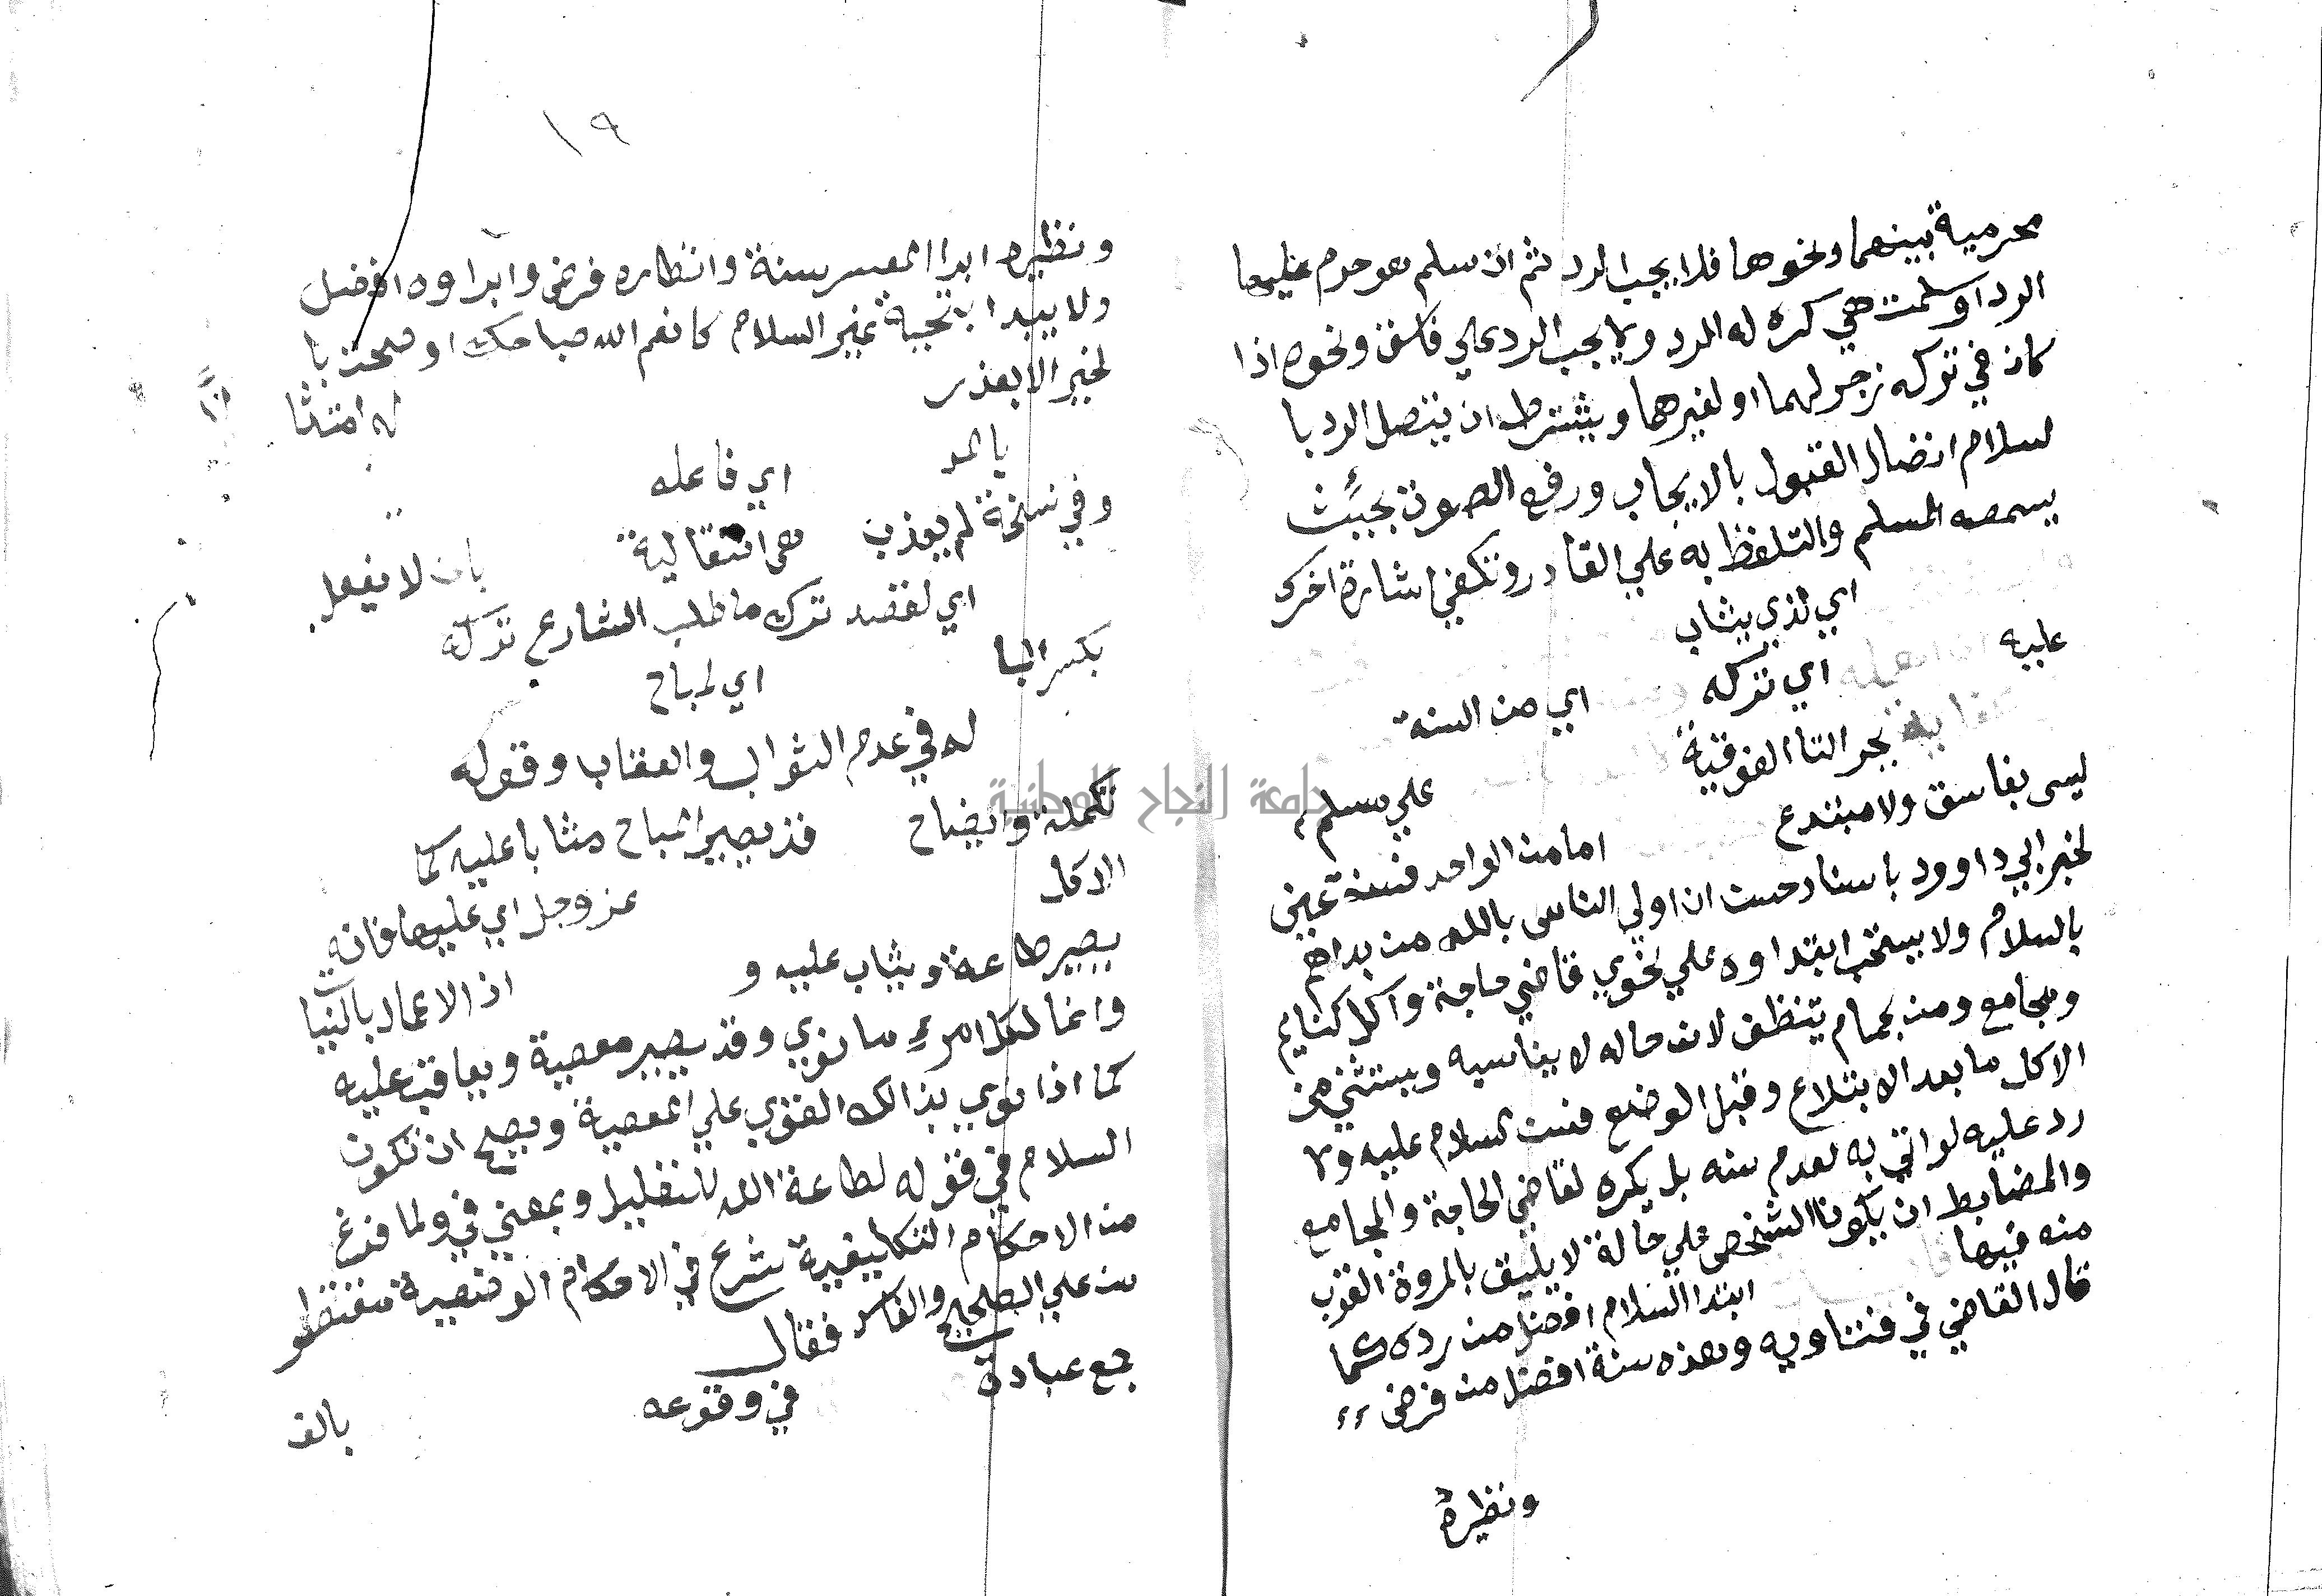 محرمية بينهما ونحوها فلا يجب الرد ثم ان سلم هو حرم عليها
الرد او سلمت هي كره له الرد ولا يجب الرد علي فاسق ونحوه اذا
كان في تركه زجر لهما او لغيرهما ويشترط ان يتصل الرد با
لسلام اتصال القبول بالايجاب ورفع الصوت بحيث
يسمعه المسلم والتلفظ به علي القادر وتكفي اشارة اخرس
اي لذي يثاب
عليه
اي تركه
اي من السنة
بجر التا الفوقية
علي مسلم
ليس بفاسق ولا مبتدع
اما من الواحد فسنة عين
لخبر ابي داوود باسناد حسن ان اولي الناس بالله من بداهم
بالسلام ولا يستحب ابتداوه علي نحوي قاضي حاجة واكل كنايم
ومجامع ومن بحمام يتنظف لان حاله لا يناسبه ويستثني من
الاكل ما بعد الابتلاع وقبل الوضع فسن السلام عليه ولا
رد عليه لو اتي به لعدم سنه بل يكره لقاضي الحاجة والمجامع
والضابط ان يكون الشخص علي حالة لا يليق بالمروة القرب
منه فيها
ابتدا السلام افضل من رده كما
قال القاضي في فتاويه وهذه سنة افضل من فرض
ونظيرة
١٩
ونظيره ابرا المعسر سنة وانظاره فرض وابراوه افضل
ولا يبدا بتحية غير السلام كانعم الله صباحك او صبحت با
لخير الا بعذر
له امتثا
بالمد
اي فاعله
وفي نسخة لم يعذب
هي انتقالية
بان لا يفعل
اي لقصد ترك ما طلب الشارع تركه
بكسر البا
اي لمباح
له في عدم الثواب والعقاب وقوله
جامعة النجاح الوطنية
تكملة وايضاح
قد يصير المباح مثابا عليه كما
الاكل
عز وجل اي عليها فانه
يصير طاعة ويثاب عليه و
اذ الاعمال بالنيا
وانما لكل امرء ما نوي وقد يصير معصية ويعاقب عليه
كما اذا نوي بذالك التقوي علي المعصية ويصح ان تكون
السلام في قوله لطاعة الله للتعليل وبمعني في ولما فرغ
من الاحكام التكليفية شرع في الاحكام الوضعية مقتطر
من علي الصحيح والفاسد فقال
جمع عبادة
في وقوعه
بالف